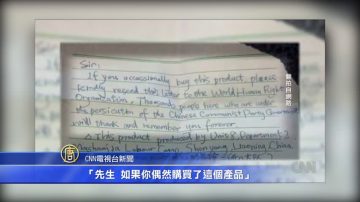 Sir:
If you occassionally buy this product, please
kindly resend this letter to the World Human Right
Organization. Thousands people here who are under
the persicution of the Chinese Communist Party Government
will thank and remember you forever
This product produced by Unit 8, Department 2
Labour Camp, Shenyang, Liaoning, China
翻拍自網路
CNN
CNN電視台新聞
「先生 如果你偶然購買了這個產品」